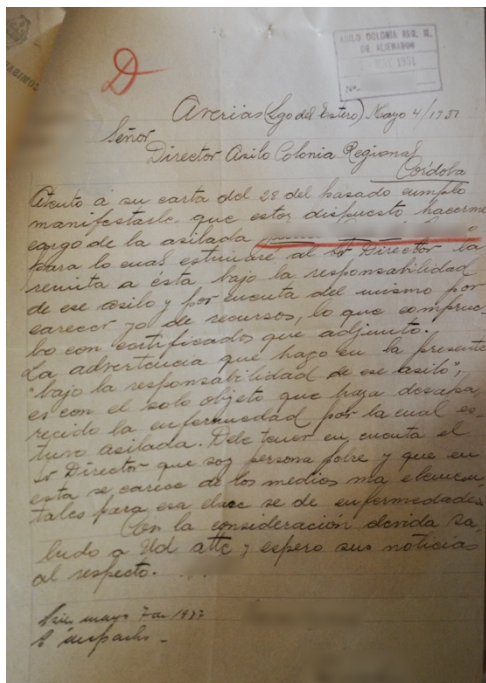 D
ASILO COLONIA REG. M.
DE ALIENADOS
MAY 1931
Nº
Averias (Sgo del Estero) Mayo 4/1931
Señor
Director Asilo Colonia Regional
Córdoba
Atento á su carta del 28 del pasado cumplo
manifestarle que estoy dispuesto hacerme
cargo de la asilada
para lo cual estimaré al Sr Director la
remita a ésta bajo la responsabilidad
de ese asilo y por cuenta del mismo por
carecer yo de recursos, lo que comprue-
bo con certificados que adjunto.
La advertencia que hago en la presente
"bajo la responsabilidad de ese asilo",
es con el solo objeto que haya desapa
recido la enfermedad por la cual es-
tuvo asilada. Debe tener en cuenta el
Sr Director que soy persona pobre y que en
esta se carece de los medios mas elemen
tales para esa clase de enfermedades
Con la consideración devida sa-
ludo a Ud atte y espero sus noticias
al respecto.
mayo 7